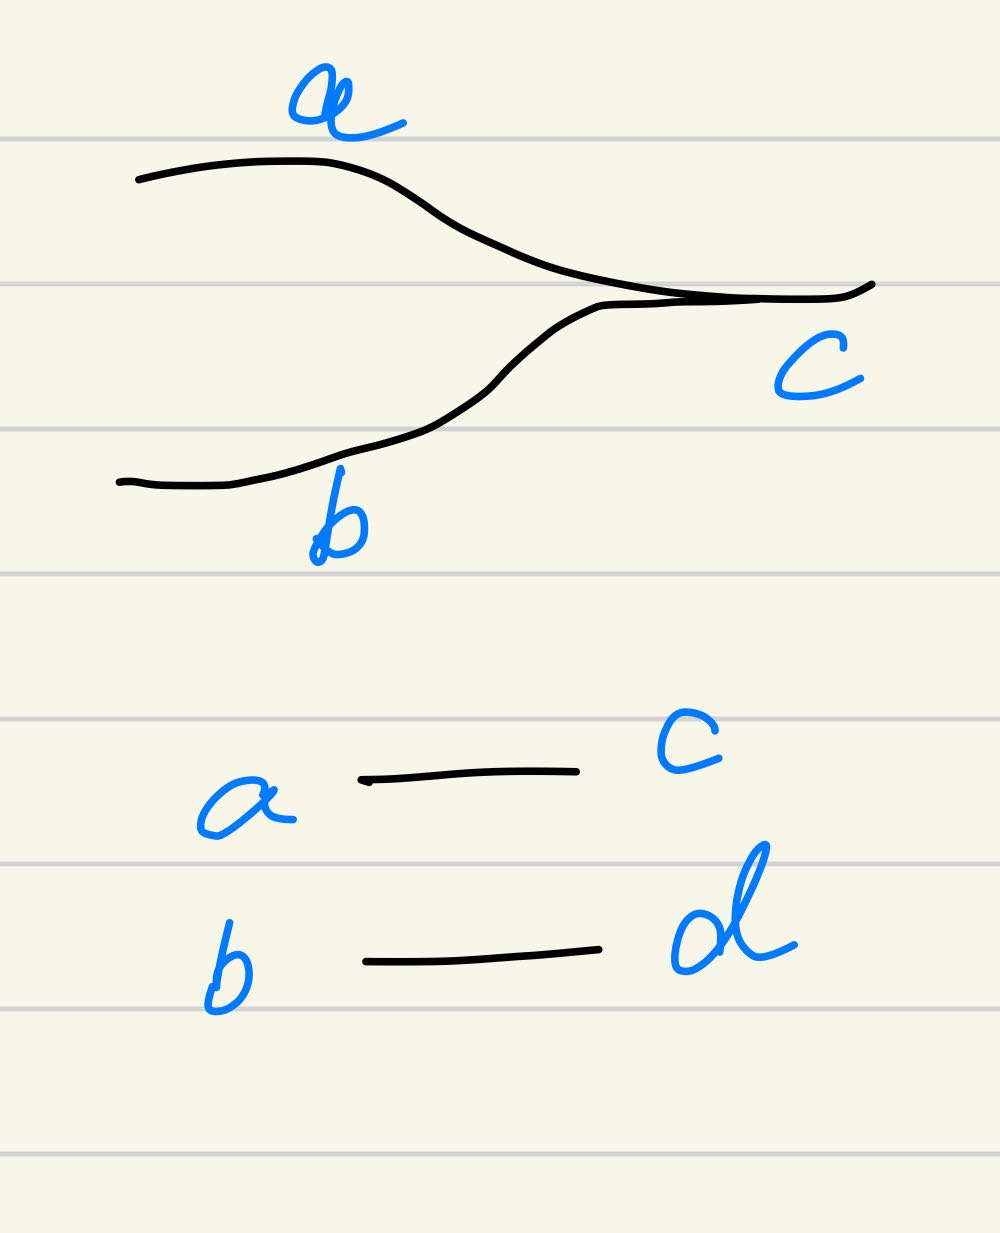 a
c
b
a — c
b — d